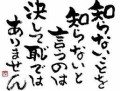 知らないことを
知らないと
言うのは
決して恥では
ありません